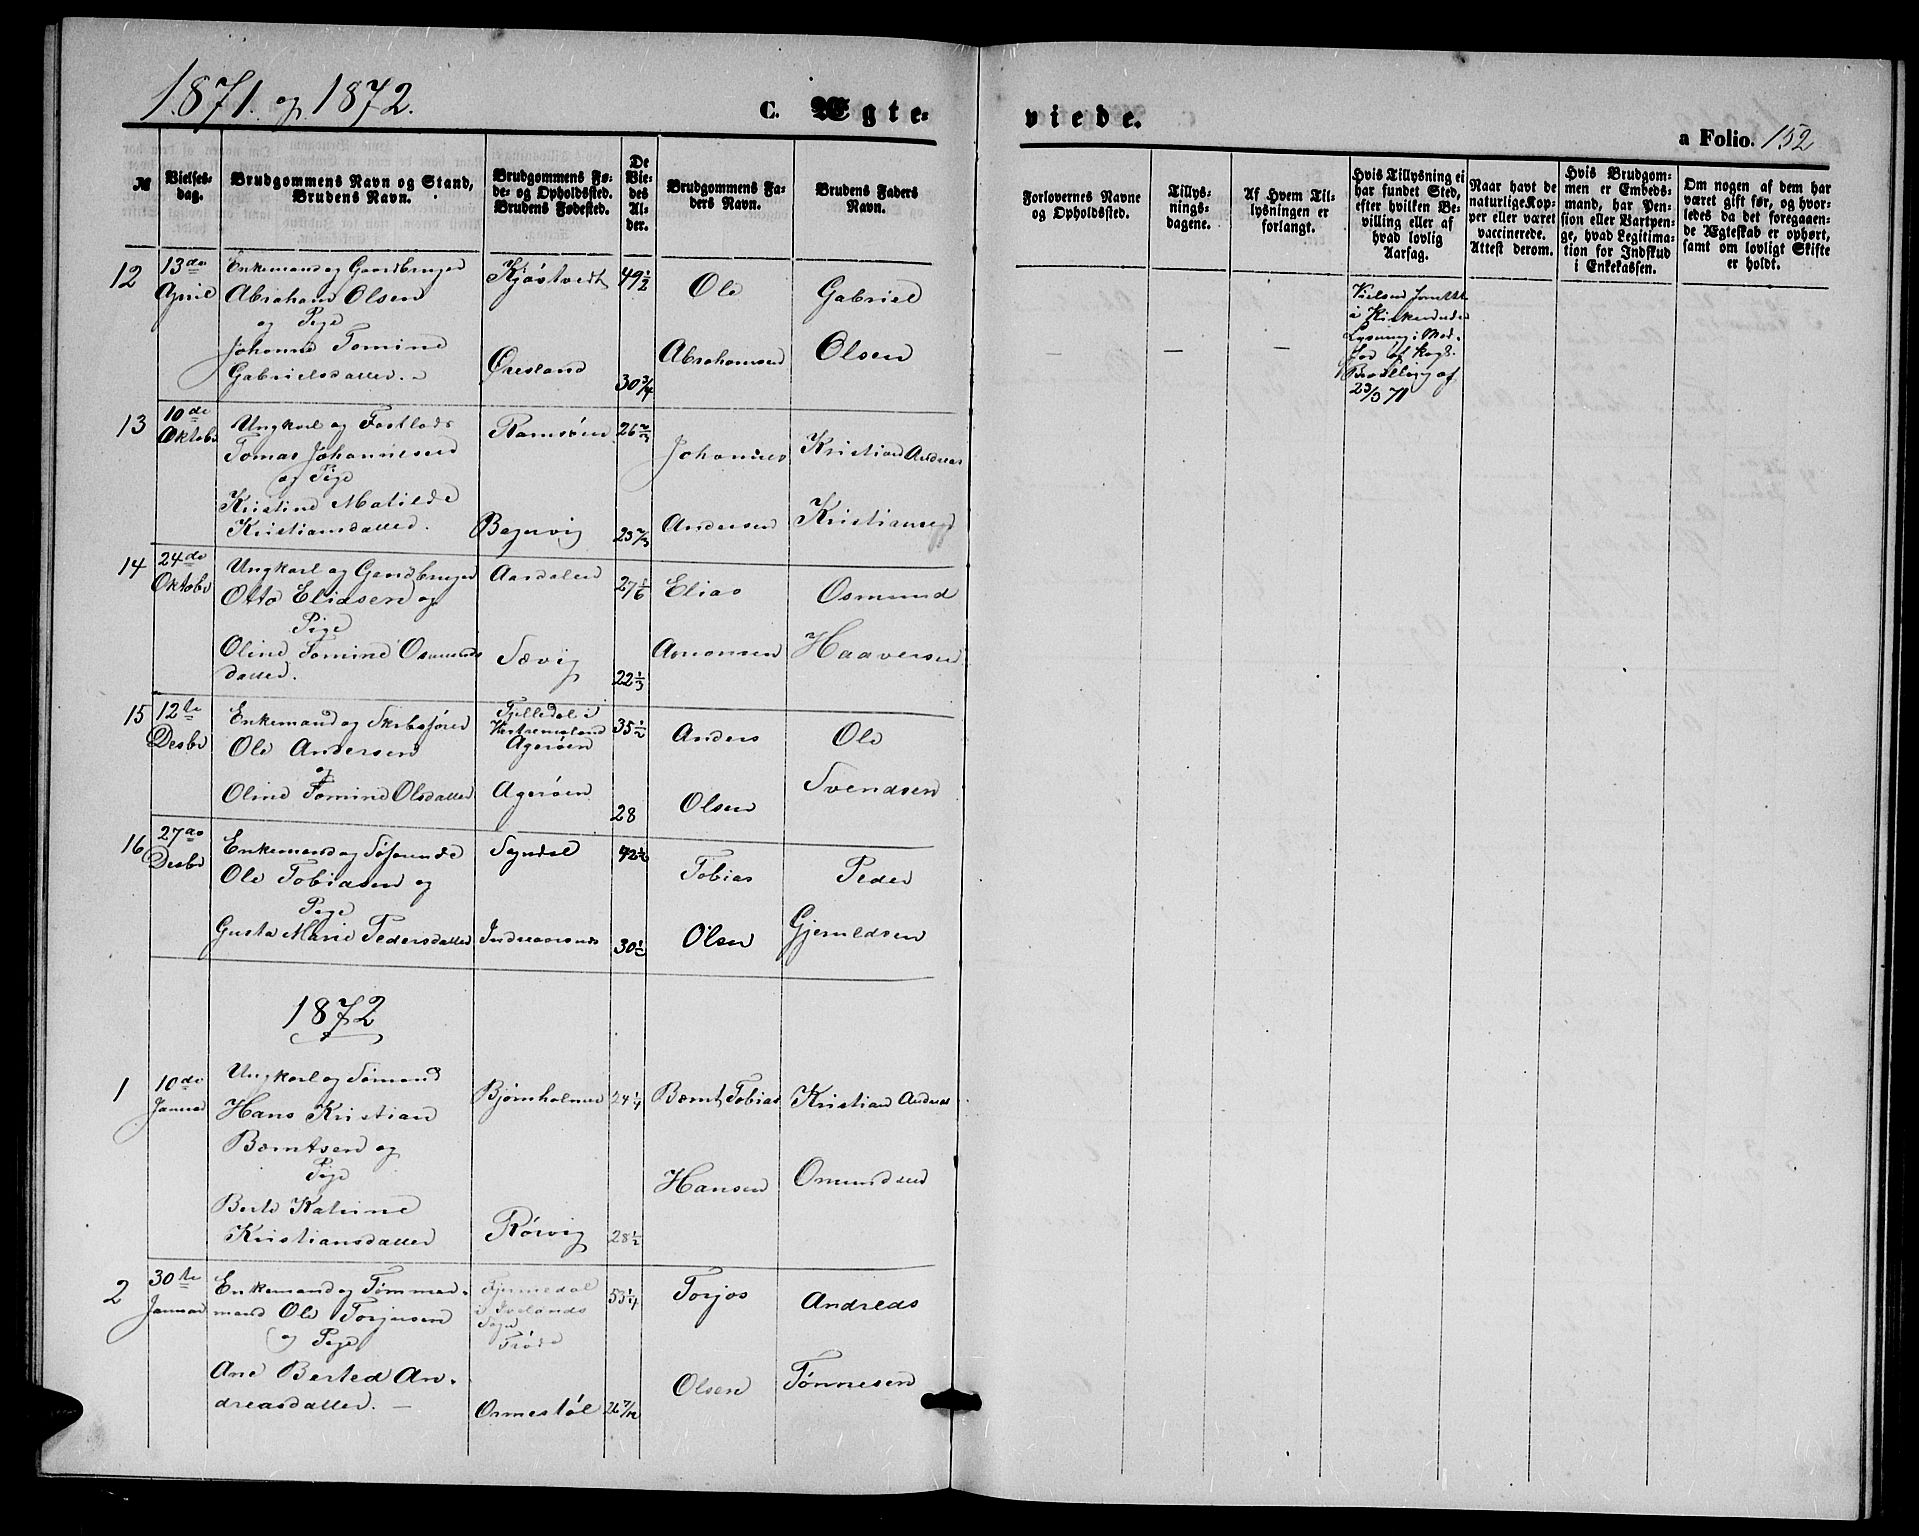 1871. og 1872.
C. Ægte-
viede.
a Folio. 152
№
Vielses-
dag.
Brudgommens Navn og Stand,
Brudens Navn.
Brudgommens Fø-
de- og Opholdssted.
Brudens Fødested.
De
Vie-
des
Al-
der.
Brudgommens Fa-
ders Navn.
Brudens Faders
Navn.
Forlovernes Navne
og Opholdssted.
Tillys-
nings-
dagene.
Af Hvem Til-
lysningen er
forlangt.
Hvis Tillysning ei
har fundet Sted,
efter hvilken Be-
villing eller af
hvad lovlig
Aarsag.
Naar havt de
naturlige Kop-
per eller været
vaccinerede.
Attest derom.
Hvis Brudgom-
men er Embeds-
mand, har Pen-
sion eller Vartpen-
ge, hvad Legitima-
tion for Indskud
i Enkekassen.
Om nogen af dem har
været gift før, og hvor-
ledes da det foregaaen-
de Ægteskab er ophørt,
samt om lovligt Skifte
er holdt.
12
13de
April
Enkemand og Gaardbruger
Abraham Olsen
og Pige
Johanne Tomine
Gabrielsdatter. -
Kjøstvedt
Øresland
49 1/2
30 3/4
Ole
Abrahamsen
Gabriel
Olsen
Vielsen
i Kirken uden
Lysning i
23/3 71
13
10de
Oktobr
Ungkarl og
Tomas Johannesen
og Pige
Kristine Matilde
Kristiansdatter.
Ramsøen
26 2/3
Johannes
Andersen
Kristian Andreas
Kristiansen
14
24de
Oktobr
Ungkarl og Gaardbruger
Otto Eliasen og
Pige
Oline Tomine Osmunds
datter.
Aardalen
Sævig
22 1/3
Elias
Osmund
Haaversen
15
12te
Desbr
Enkemand og Skibsfører
Ole Andersen
og
Oline Tomine Olsdatter
Agerøen
Agerøen
35 1/2
28
Anders
Olsen
Ole
Svendsen
16
27de
Desbr
Enkemand og Søfarende
Ole Tobiasen og
Pige
Gusta Marie Pedersdatter
42 1/2
30 1/2
Tobias
Olsen
Peder
Gjeruldsen
1872
1
10de
Januar
Ungkarl og Sømand
Hans Kristian
Berntsen og
Pige
Berte Katrine
Kristiansdatter
Bjørnholmen
Rørvig
24 1/4
28 1/2
Bernt Tobias
Hansen
Kristian Andreas
Omundsen
2
30te
Januar
Enkemand og Tømmer-
mand Ole Torjusen
og Pige
Ane Bertea An-
dreasdatter. -
i Ivelands
Sogn
Ormestøl
53 1/4
26 7/12
Torjus
Olsen
Andreas
Tønnesen